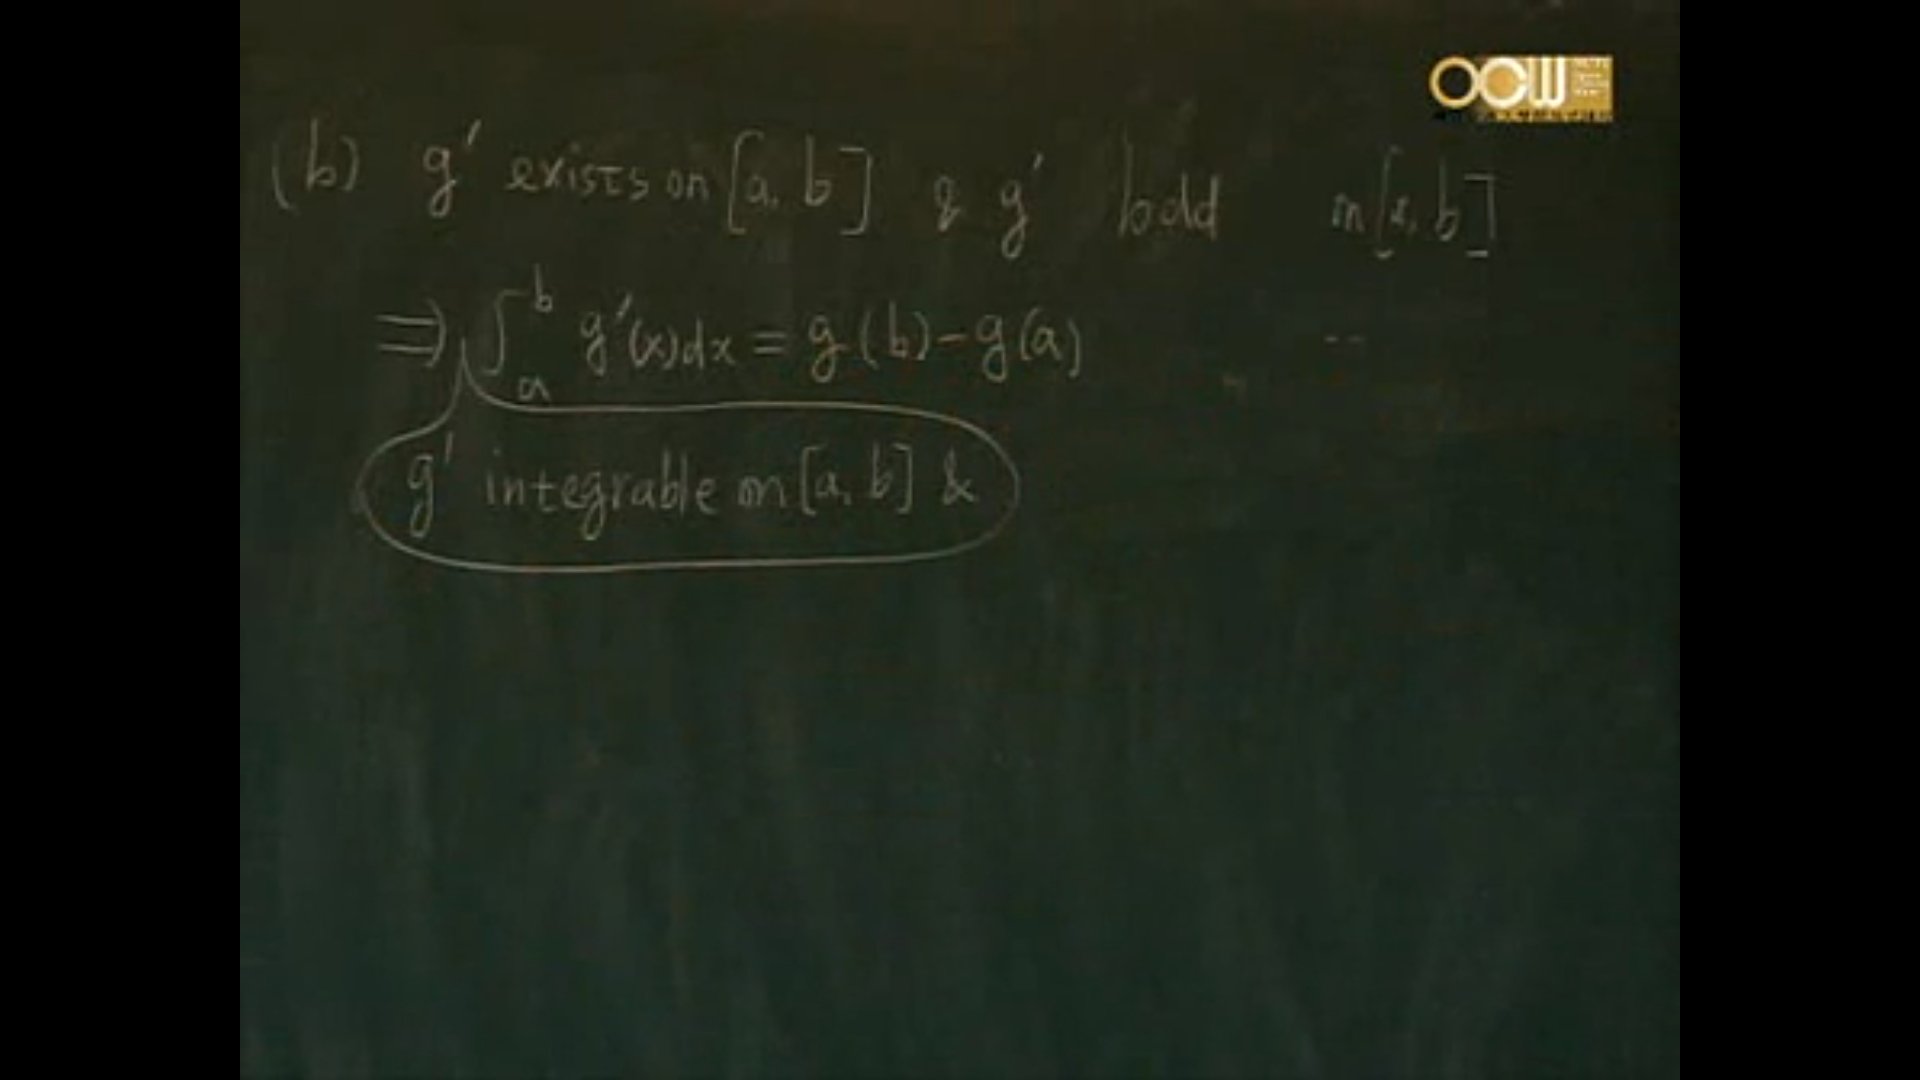 OCW
(b) g' exists on [a, b] & g' bdd on [a, b]
⇒ ∫_a^b g'(x)dx = g(b) - g(a)
g' integrable on [a, b] &